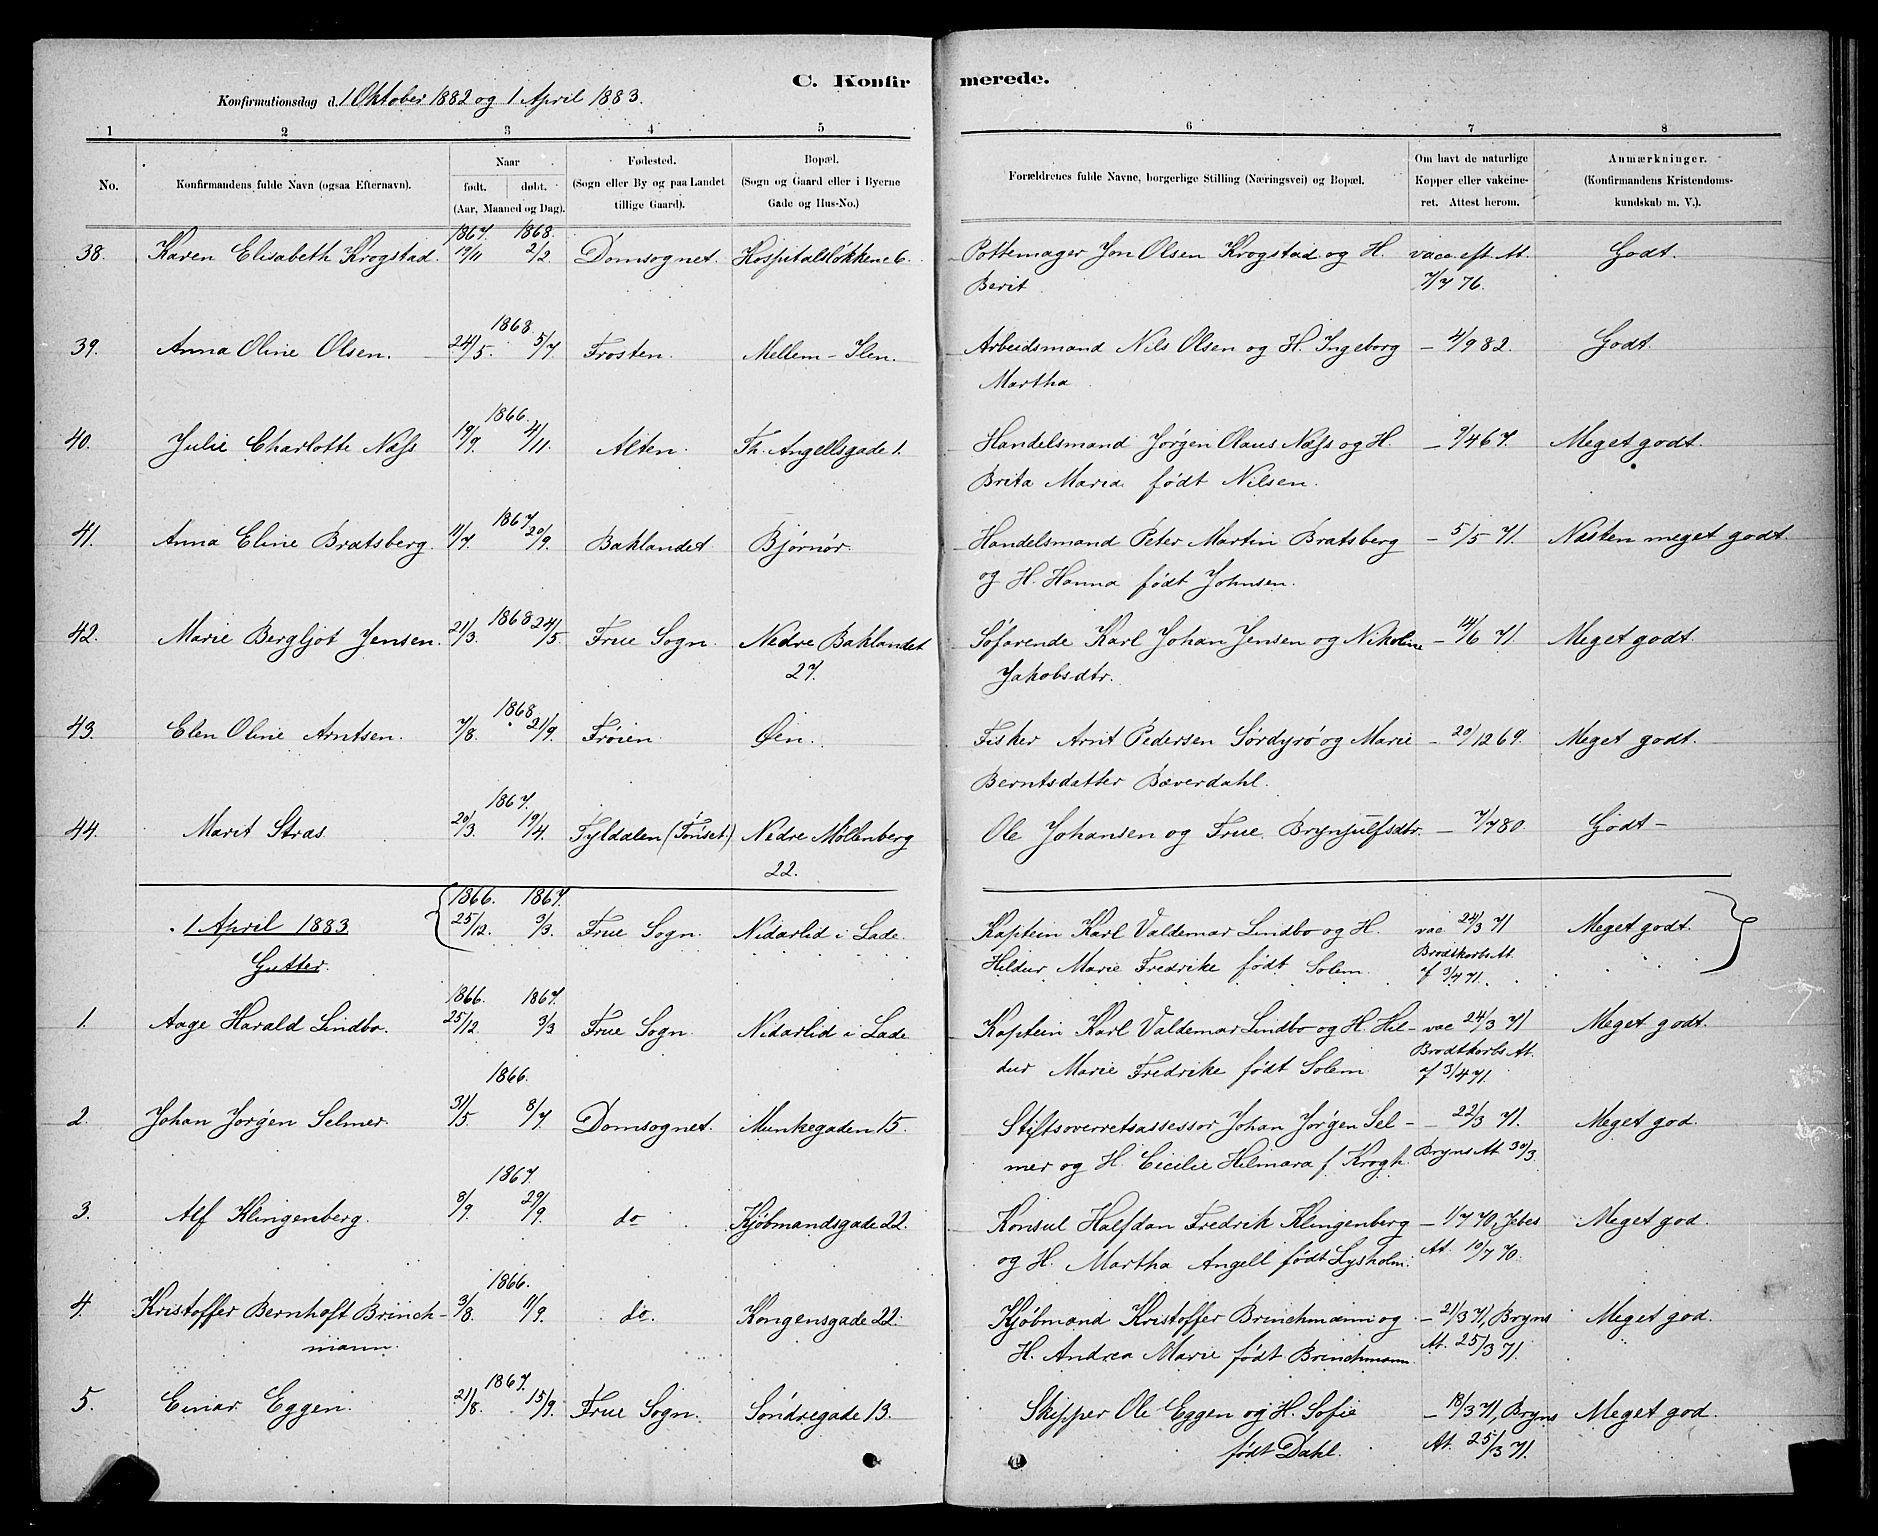 C. Konfirmerede.
Konfirmationsdag d. 1 Oktober 1882 og 1 April 1883.
1 2 3 4 5 6 7 8
No. Konfirmandens fulde Navn (ogsaa Efternavn). Naar født. døbt. (Aar, Maaned og Dag). Fødested. (Sogn eller By og paa Landet tillige Gaard). Bopæl. (Sogn og Gaard eller i Byerne Gade og Hus-No.) Forældrenes fulde Navne, borgerlige Stilling (Næringsvei) og Bopæl. Om havt de naturlige Kopper eller vakcineret. Attest herom. Anmærkninger. (Konfirmandens Kristendomskundskab m. V.).
1867. 1868.
38. Karen Elisabeth Krogstad. 19/11 2/2 Domsognet. Hospitalsløkkene 6. Pottemager Jon Olsen Krogstad og H. vacc. eft. At. Godt.
Berit 7/7 76.
1868.
39. Anna Oline Olsen. 24/5. 5/7 Frosten. Mellem-Ilen. Arbeidsmand Nils Olsen og H. Ingeborg – 4/9 82. Godt.
Martha
1866.
40. Julie Charlotte Næss 19/9. 4/11. Alten. Th. Angellsgade 1. Handelsmand Jørgen Olaus Næss og H. – 9/4 67. Meget godt.
Brita Maria født Nilsen.
1867
41. Anna Eline Bratsberg. 11/7. 20/9. Baklandet. Bjørnør. Handelsmand Peter Martin Bratsberg – 5/5 71. Næsten meget godt.
og H. Hanna født Johnsen.
1868
42. Marie Bergljot Jensen. 21/3. 24/5. Frue Sogn. Nedre Baklandet Søfarende Karl Johan Jensen og Nikoline – 14/6 71. Meget godt.
27. Jakobsdtr.
1868
43. Elen Oline Arntsen. 7/8. 21/9. Frøien. Øen. Fisker Arnt Pedersen Sørdyrø og Marie – 20/12 69. Meget godt.
Berntsdatter Bæverdahl.
1867.
44. Marit Stræs 20/3. 19/4. Tyldalen (Tønset.) Nedre Møllenberg Ole Johansen og Frue Brynjulfsdtr. – 7/7 80. Godt –
22.
1866. 1867.
1 April 1883 25/12. 3/3. Frue Sogn. Nidarlid i Lade. Kaptein Karl Valdemar Lindbo og H. vac 24/3 71 Meget godt.
Gutter. Hildur Marie Fredrike født Solem. Brodtkorbs At. f 3/4 71.
1866. 1867.
1. Aage Harald Lindbo. 25/12. 3/3 Frue Sogn. Nidarlid i Lade Kaptein Karl Valdemar Lindbo og H. Hil- vac 24/3 71 Meget godt.
dur Marie Fredrike født Solem Brodtkorbs At. f 3/4 71.
1866.
2. Johan Jørgen Selmer. 31/5 8/7 Domsognet. Munkegaden 15. Stiftsoverretsassessor Johan Jørgen Sel- – 22/3 71. Meget god.
mer og H. Cicilie Hilmara f Krogh. Bryns At 30/3.
1867.
3. Alf Klingenberg. 8/9. 29/9. do Kjøbmandsgade 22. Konsul Halfdan Fredrik Klingenberg – 1/7 70, Jebes Meget god.
og H. Martha Angell født Lysholm. At. 10/7 70.
1866.
4. Kristoffer Bernhoft Brinch- 3/8. 11/9. do. Kongensgade 22. Kjøbmand Kristoffer Brinchmann og – 21/3 71, Bryns Meget god.
mann. H. Andrea Marie født Brinchmann. At. 25/3 71.
1867.
5. Einar Eggen. 21/8. 15/9. Frue Sogn. Søndregade 13. Skipper Ole Eggen og H. Sofie – 18/3 71, Bryns Meget god.
født Dahl. At. 25/3 71.